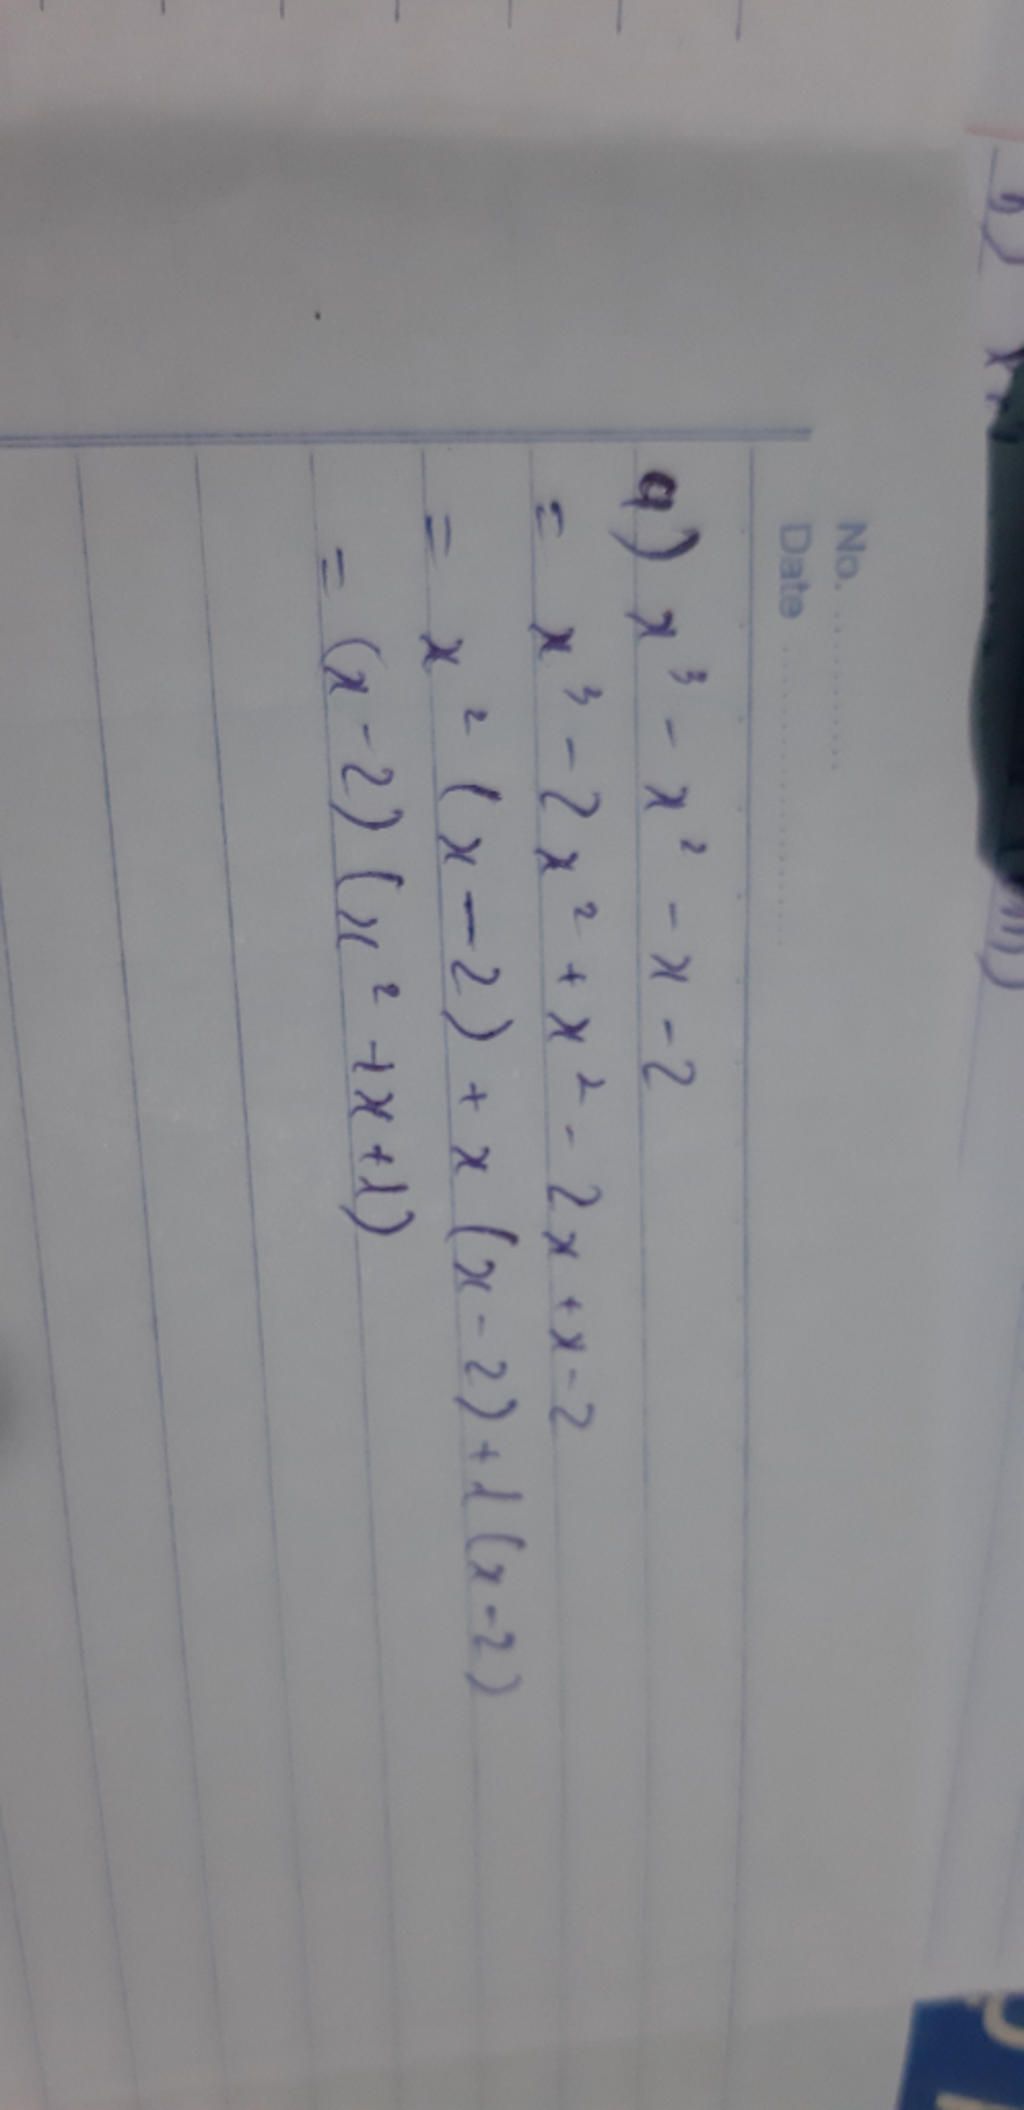 No. ............
Date ......................
9) x³ - x² - x - 2
= x³ - 2x² + x² - 2x + x - 2
= x² (x - 2) + x (x - 2) + 1 (x - 2)
= (x - 2) (x² + x + 1)